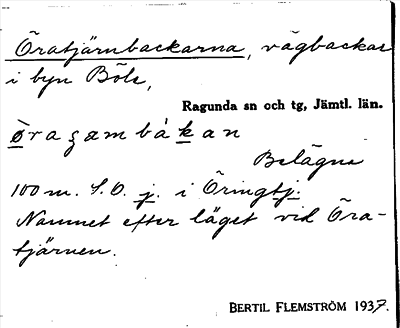 Öratjärnbackarna, vägbackar
i byn Böle,
Ragunda sn och tg, Jämtl. län.
Belägna
100 m. S.O. j. i Öringtj.
Namnet efter läget vid Öra-
tjärnen.
BERTIL FLEMSTRÖM 1937.